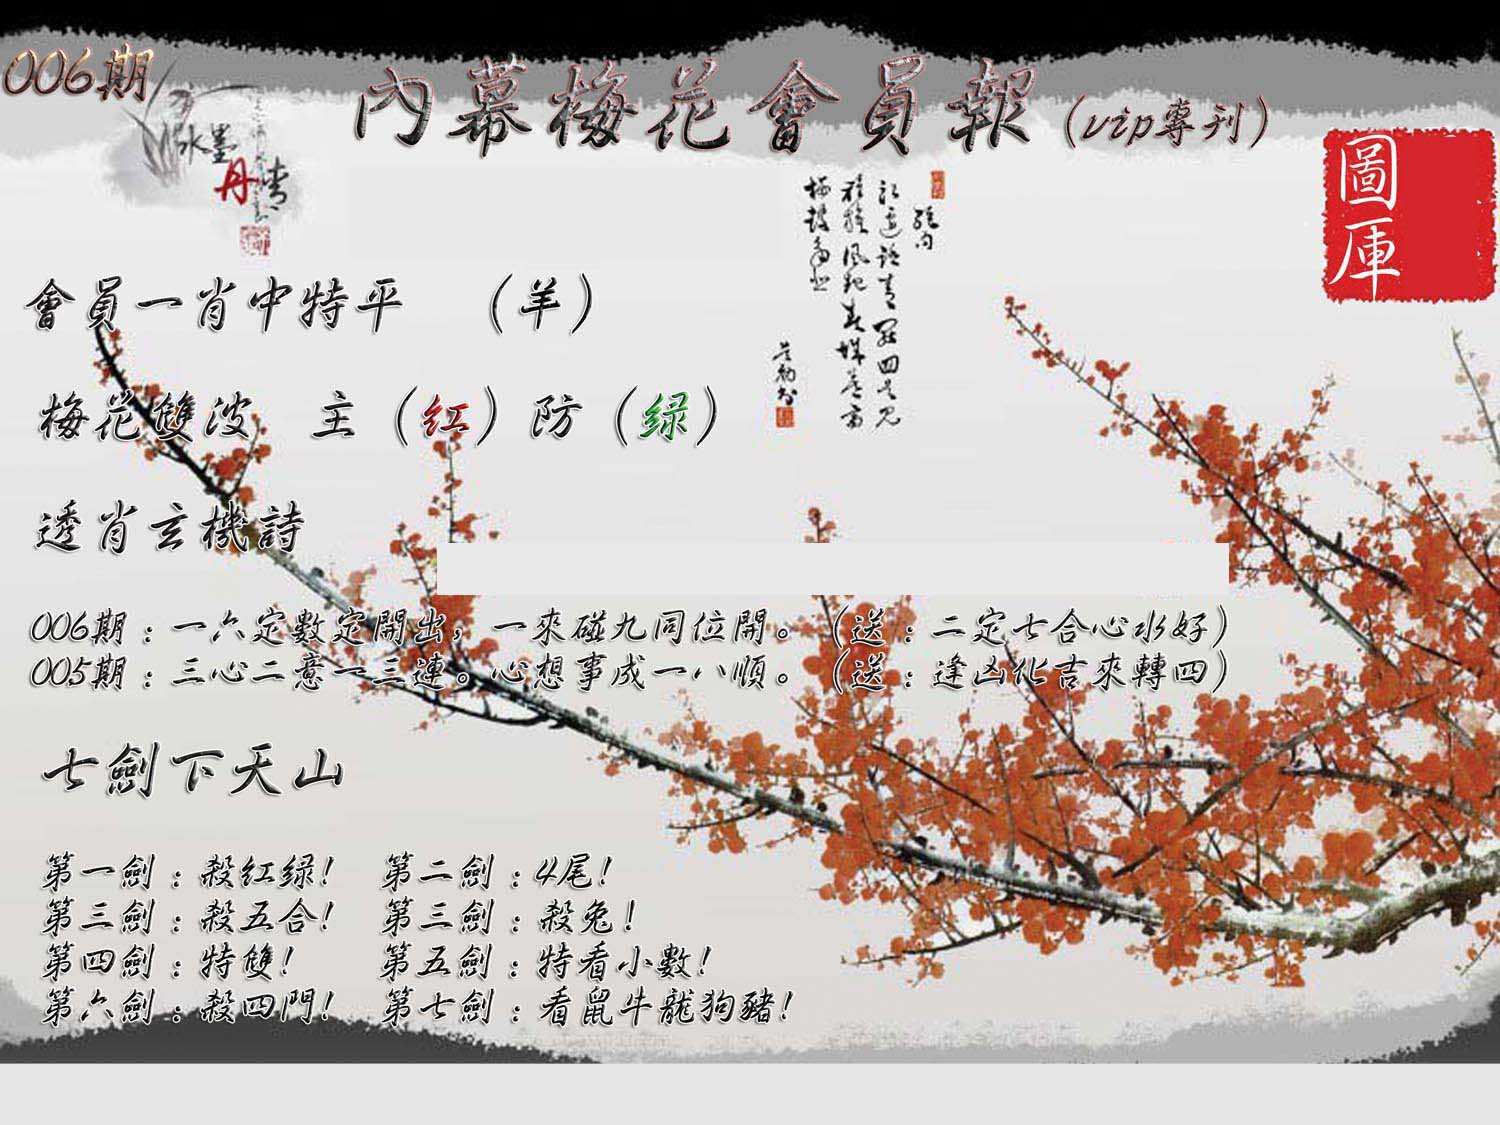 006期
內幕梅花會員報（vip專刊）
水墨
丹青
圖庫
會員一肖中特平　（羊）
梅花雙波　主（红）防（绿）
透肖玄機詩
006期：一六定數定開出，一來碰九同位開。（送：二定七合心水好）
005期：三心二意一三連。心想事成一八順。（送：逢凶化吉來轉四）
七劍下天山
第一劍：殺红绿！　第二劍：4尾！
第三劍：殺五合！　第三劍：殺兔！
第四劍：特雙！　第五劍：特看小數！
第六劍：殺四門！　第七劍：看鼠牛龍狗豬！